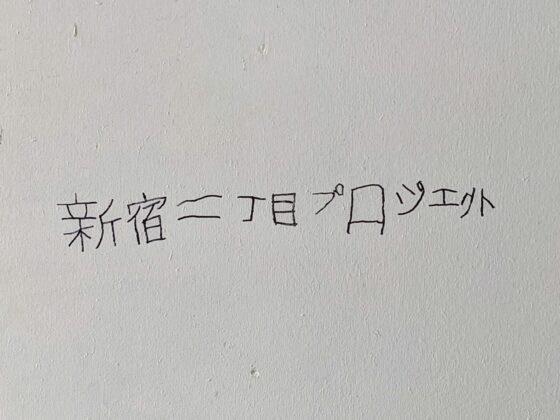 新宿二丁目プロジェクト